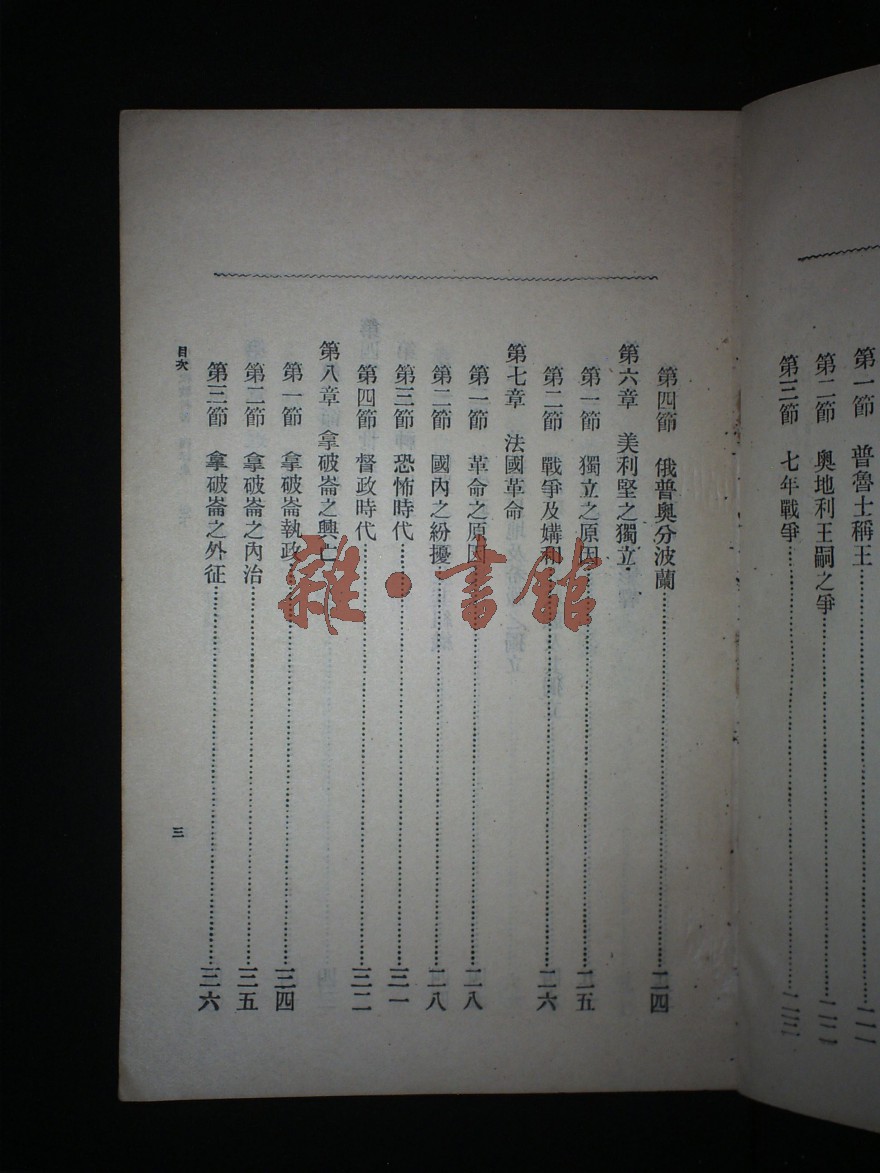 第一節 普魯士稱王
第二節 奧地利王嗣之爭
第三節 七年戰爭 二三
第四節 俄普奧分波蘭 二四
第六章 美利堅之獨立
第一節 獨立之原因 二五
第二節 戰爭及媾和 二六
第七章 法國革命
第一節 革命之原因 二八
第二節 國內之紛擾 二八
第三節 恐怖時代 三一
第四節 督政時代 三二
第八章 拿破崙之興亡
第一節 拿破崙執政 三四
第二節 拿破崙之內治 三五
第三節 拿破崙之外征 三六
目次
三
雜·書館